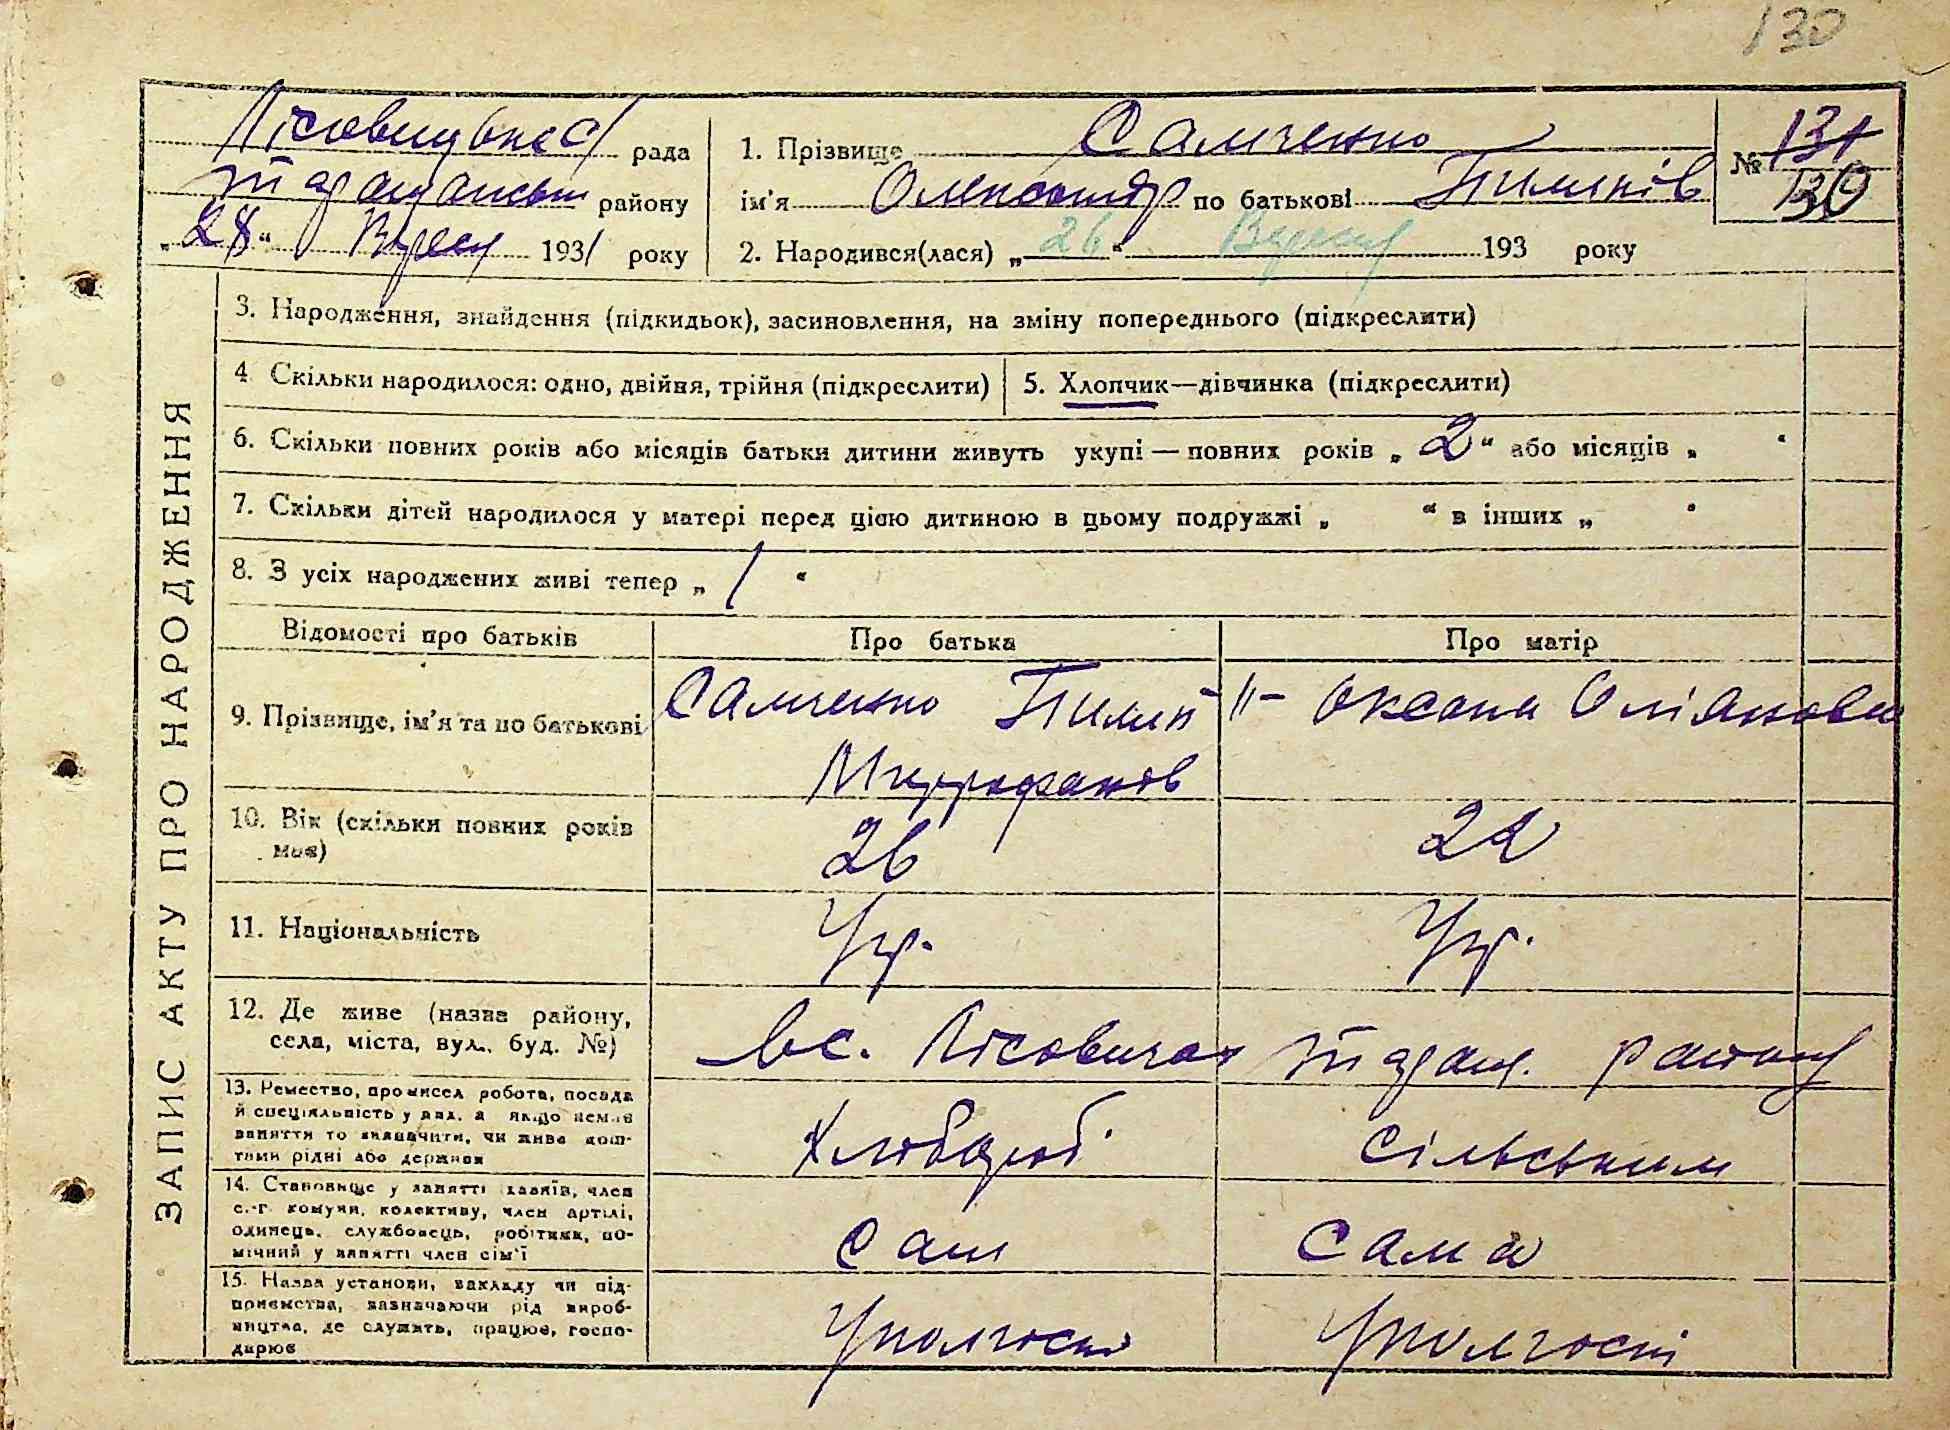 130
Лісовицька с/рада
Таращанськ району
„28“ Вересн 1931 року
1. Прізвище Самченко
ім'я Олександр по батькові Пилипків
2. Народився(лася) „26“ Вересня 193 року
№ 131
130
ЗАПИС АКТУ ПРО НАРОДЖЕННЯ
3. Народження, знайдення (підкидьок), засиновлення, на зміну попереднього (підкреслити)
4. Скільки народилося: одно, двійня, трійня (підкреслити)
5. Хлопчик—дівчинка (підкреслити)
6. Скільки повних років або місяців батьки дитини живуть укупі — повних років „2“ або місяців „ “
7. Скільки дітей народилося у матері перед цією дитиною в цьому подружжі „ “ в інших „ “
8. З усіх народжених живі тепер „1“
Відомості про батьків Про батька Про матір
9. Прізвище, ім'я та по батькові Самченко Пилип -"- Оксана
Митрофанів
10. Вік (скільки повних років 26 22
має)
11. Національність Укр. Укр.
12. Де живе (назва району,
села, міста, вул., буд. №) в с. Лісовичах Таращ. району
13. Ремество, промисел робота, посада
й спеціяльність у влд. а якщо немає
заняття то визначити, чи живе кош-
тами рідні або держави Хлібороб. Сільським
14. Становище у занятті хазяїв, член
с.-г. комуни, колективу, член артілі,
одинець, службовець, робітник, по-
мічний у занятті член сім'ї Сам Сама
15. Назва установи, закладу чи під-
приємства, зазначаючи рід вироб-
ництва, де служить, працює, госпо-
дарює У полгоспі У полгоспі